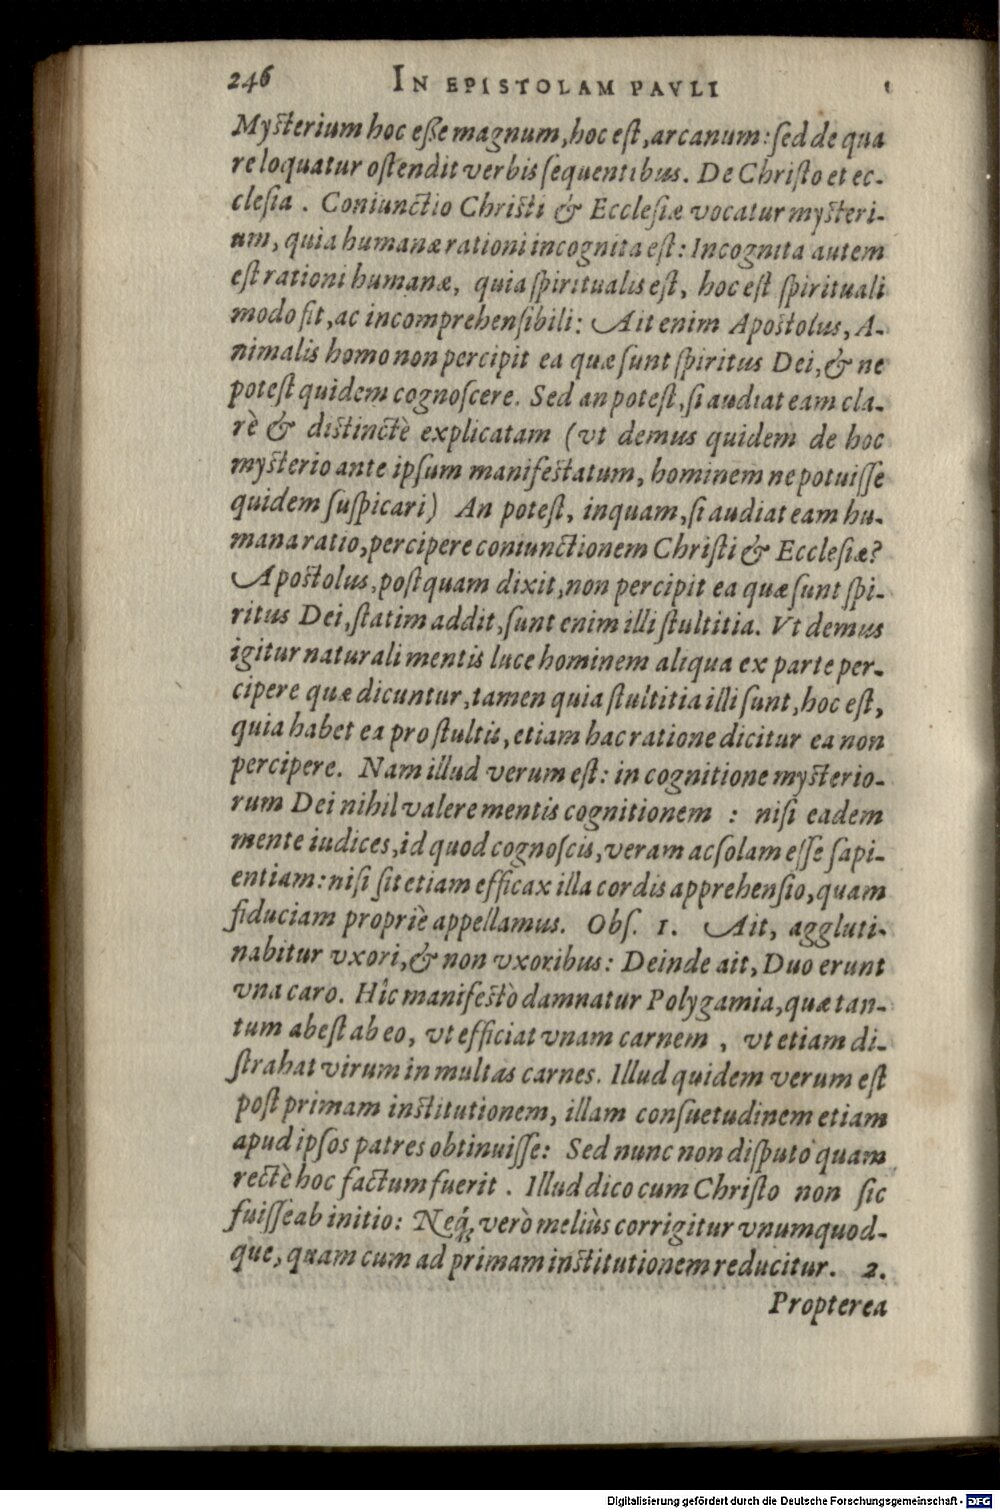 246 IN EPISTOLAM PAVLI
Mysterium hoc eße magnum, hoc est, arcanum: sed de qua
re loquatur ostendit verbis sequentibus. De Christo et ec-
clesia. Coniunctio Christi & Ecclesiæ vocatur mysteri-
um, quia humanæ rationi incognita est: Incognita autem
est rationi humanæ, quia spiritualis est, hoc est spirituali
modo fit, ac incomprehensibili: Ait enim Apostolus, A-
nimalis homo non percipit ea quæ sunt spiritus Dei, & ne
potest quidem cognoscere. Sed an potest, si audiat eam cla-
rè & distinctè explicatam (vt demus quidem de hoc
mysterio ante ipsum manifestatum, hominem ne potuisse
quidem suspicari) An potest, inquam, si audiat eam hu-
mana ratio, percipere coniunctionem Christi & Ecclesiæ?
Apostolus, postquam dixit, non percipit ea quæ sunt spi-
ritus Dei, statim addit, sunt enim illi stultitia. Vt demus
igitur naturali mentis luce hominem aliqua ex parte per-
cipere quæ dicuntur, tamen quia stultitia illi sunt, hoc est,
quia habet ea pro stultis, etiam hac ratione dicitur ea non
percipere. Nam illud verum est: in cognitione mysterio-
rum Dei nihil valere mentis cognitionem : nisi eadem
mente iudices, id quod cognoscis, veram ac solam esse sapi-
entiam: nisi sit etiam efficax illa cordis apprehensio, quam
fiduciam propriè appellamus. Obs. 1. Ait, aggluti-
nabitur vxori, & non vxoribus: Deinde ait, Duo erunt
vna caro. Hîc manifestò damnatur Polygamia, quæ tan-
tum abest ab eo, vt efficiat vnam carnem , vt etiam di-
strahat virum in multas carnes. Illud quidem verum est
post primam institutionem, illam consuetudinem etiam
apud ipsos patres obtinuisse: Sed nunc non disputo quam
rectè hoc factum fuerit . Illud dico cum Christo non sic
fuisse ab initio: Neq́; verò meliùs corrigitur vnumquod-
que, quam cum ad primam institutionem reducitur. 2.
Propterea
Digitalisierung gefördert durch die Deutsche Forschungsgemeinschaft - DFG